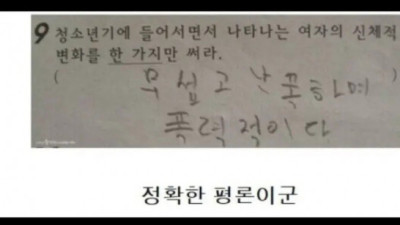 9 청소년기에 들어서면서 나타나는 여자의 신체적
변화를 한 가지만 써라.
( 무섭고 난폭하며
폭력적이다
정확한 평론이군